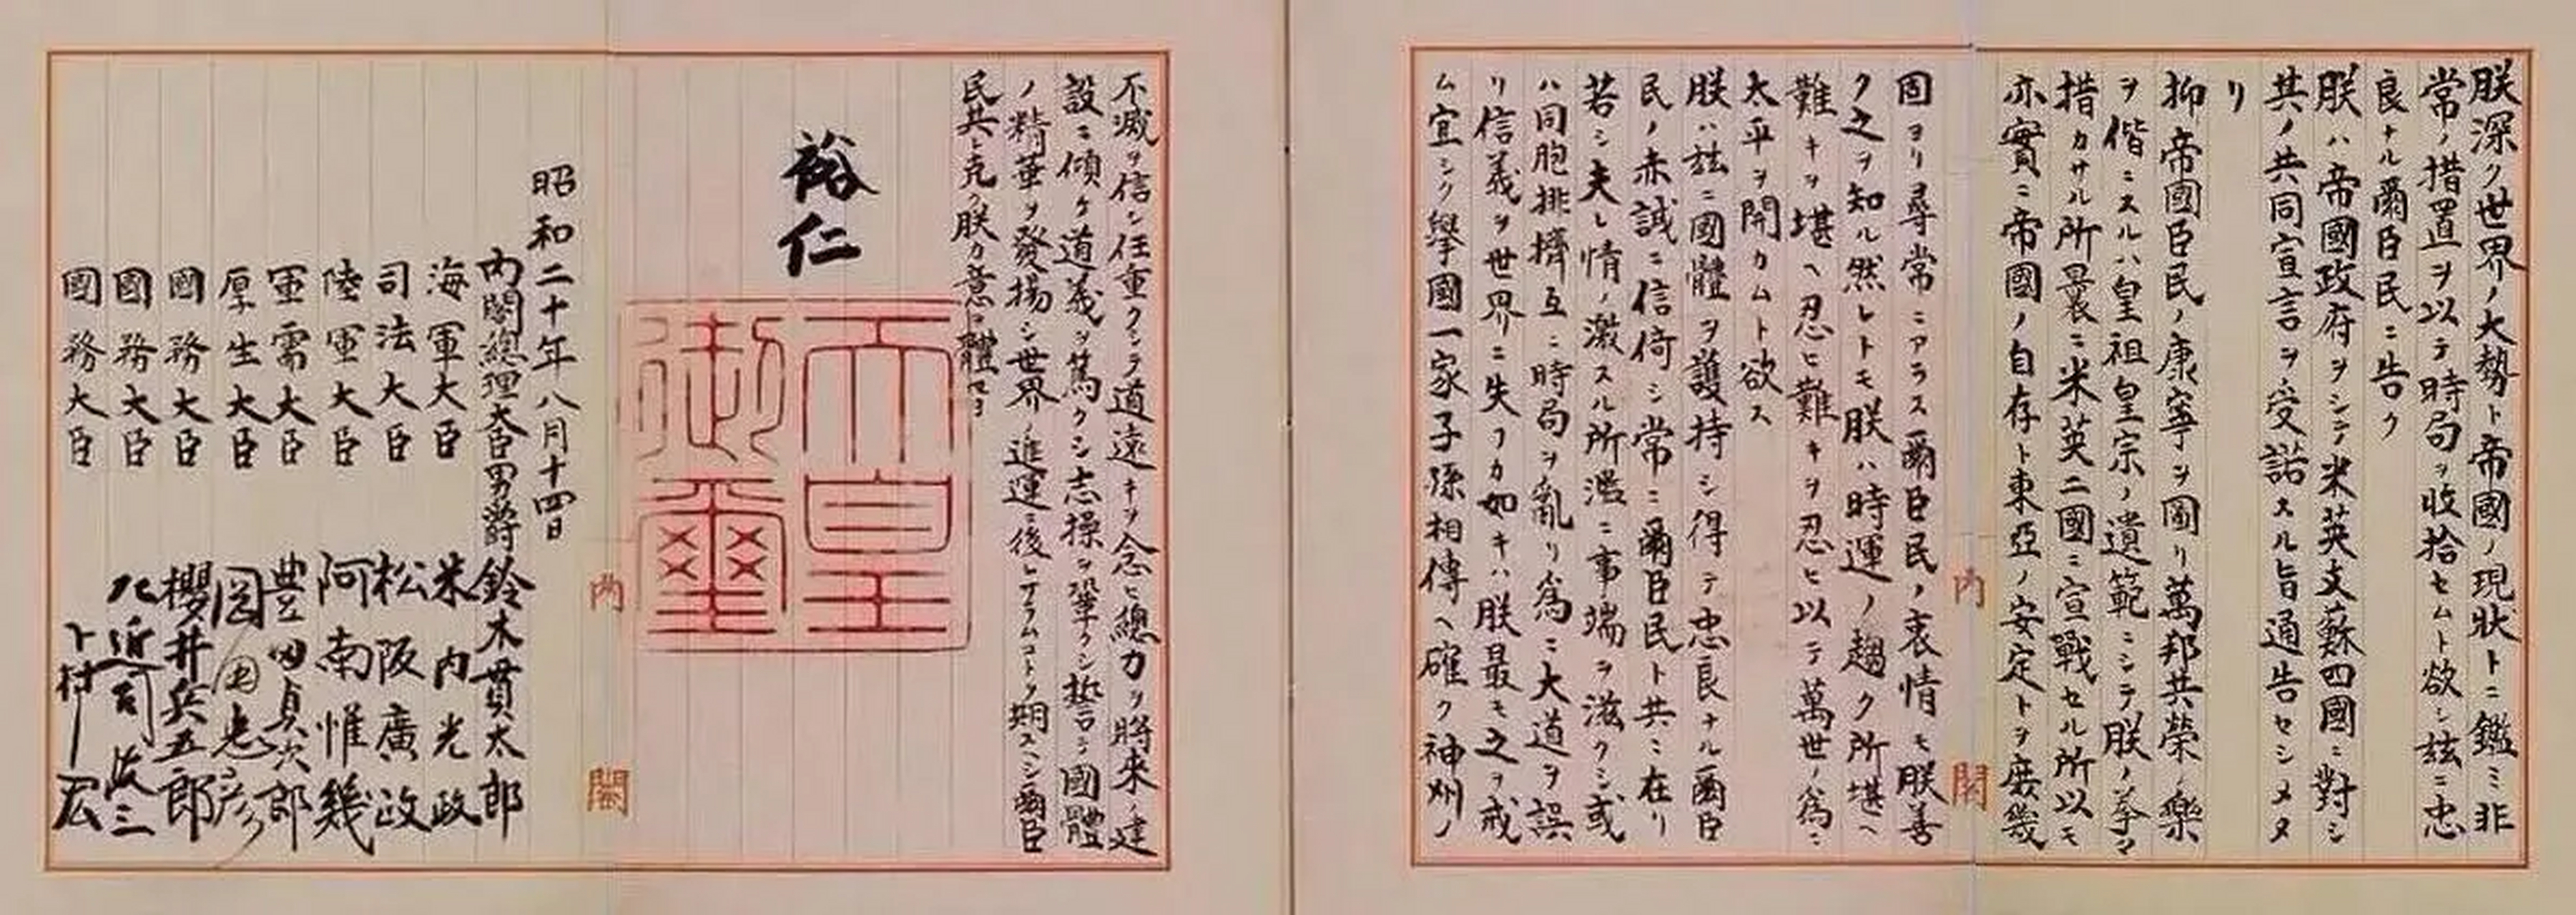 朕深ク世界ノ大勢ト帝國ノ現狀トニ鑑ミ非
常ノ措置ヲ以テ時局ヲ收拾セムト欲シ茲ニ忠
良ナル爾臣民ニ告ク
朕ハ帝國政府ヲシテ米英支蘇四國ニ對シ
其ノ共同宣言ヲ受諾スル旨通告セシメタ
リ
抑帝國臣民ノ康寧ヲ圖リ萬邦共榮ノ樂
ヲ偕ニスルハ皇祖皇宗ノ遺範ニシテ朕ノ拳々
措カサル所曩ニ米英二國ニ宣戰セル所以モ
亦實ニ帝國ノ自存ト東亞ノ安定トヲ庶幾
內閣
固ヨリ尋常ニアラス爾臣民ノ衷情モ朕善
ク之ヲ知ル然レトモ朕ハ時運ノ趨ク所堪ヘ
難キヲ堪ヘ忍ヒ難キヲ忍ヒ以テ萬世ノ爲ニ
太平ヲ開カムト欲ス
朕ハ茲ニ國體ヲ護持シ得テ忠良ナル爾臣
民ノ赤誠ニ信倚シ常ニ爾臣民ト共ニ在リ
若シ夫レ情ノ激スル所濫ニ事端ヲ滋クシ或
ハ同胞排擠互ニ時局ヲ亂リ爲ニ大道ヲ誤
リ信義ヲ世界ニ失フカ如キハ朕最モ之ヲ戒
ム宜シク擧國一家子孫相傳ヘ確ク神州ノ
不滅ヲ信シ任重クシテ道遠キヲ念ヒ總力ヲ將來ノ建
設ニ傾ケ道義ヲ篤クシ志操ヲ鞏クシ誓テ國體
ノ精華ヲ發揚シ世界ノ進運ニ後レサラムコトヲ期スヘシ爾臣
民其レ克ク朕カ意ヲ體セヨ
裕仁
天皇
御璽
內閣
昭和二十年八月十四日
內閣總理大臣男爵 鈴木貫太郎
海軍大臣 米內光政
司法大臣 松阪廣政
陸軍大臣 阿南惟幾
軍需大臣 豊田貞次郎
厚生大臣 岡田忠彦
國務大臣 櫻井兵五郎
國務大臣 左近司政三
國務大臣 下村宏